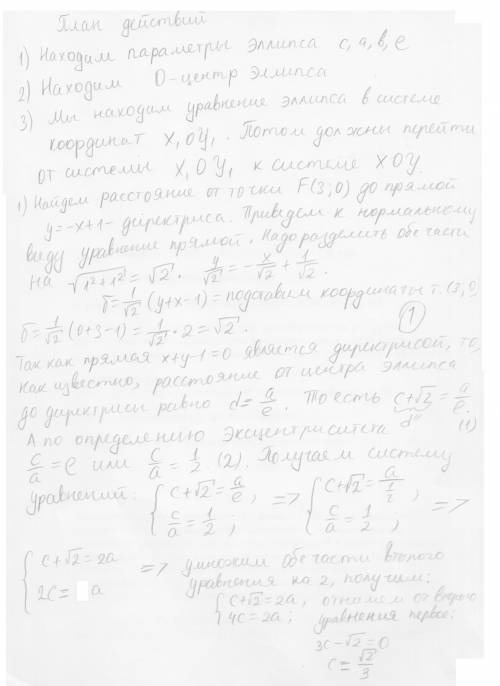 План действий
1) Находим параметры эллипса c, a, b, e
2) Находим O-центр эллипса
3) Мы находим уравнение эллипса в системе
координат X₁OY₁. Потом должны перейти
от системы X₁OY₁ к системе XOY.
1) Найдем расстояние от точки F(3;0) до прямой
y=-x+1- директриса. Приведем к нормальному
виду уравнение прямой. Надо разделить обе части
на √(1²+1²) = √2. y/√2 = -x/√2 + 1/√2.
δ = 1/√2 (y+x-1) = подставим координаты т. (3;0)
δ = 1/√2 (0+3-1) = 1/√2 · 2 = √2. (1)
Так как прямая x+y-1=0 является директрисой, то,
как известно, расстояние от центра эллипса
до директрисы равно d = a/e. То есть c+√2 = a/e.
d (1)
А по определению эксцентриситета
c/a = e или c/a = 1/2 (2). Получаем систему
уравнений: { c+√2 = a/e, c/a = 1/2; => { c+√2 = a/(1/2), c/a = 1/2; =>
{ c+√2 = 2a 2c = a => умножим обе части второго
уравнения на 2, получим:
{ c+√2 = 2a, 4c = 2a; отнимем от второго
уравнения первое:
3c-√2 = 0
c = √2/3